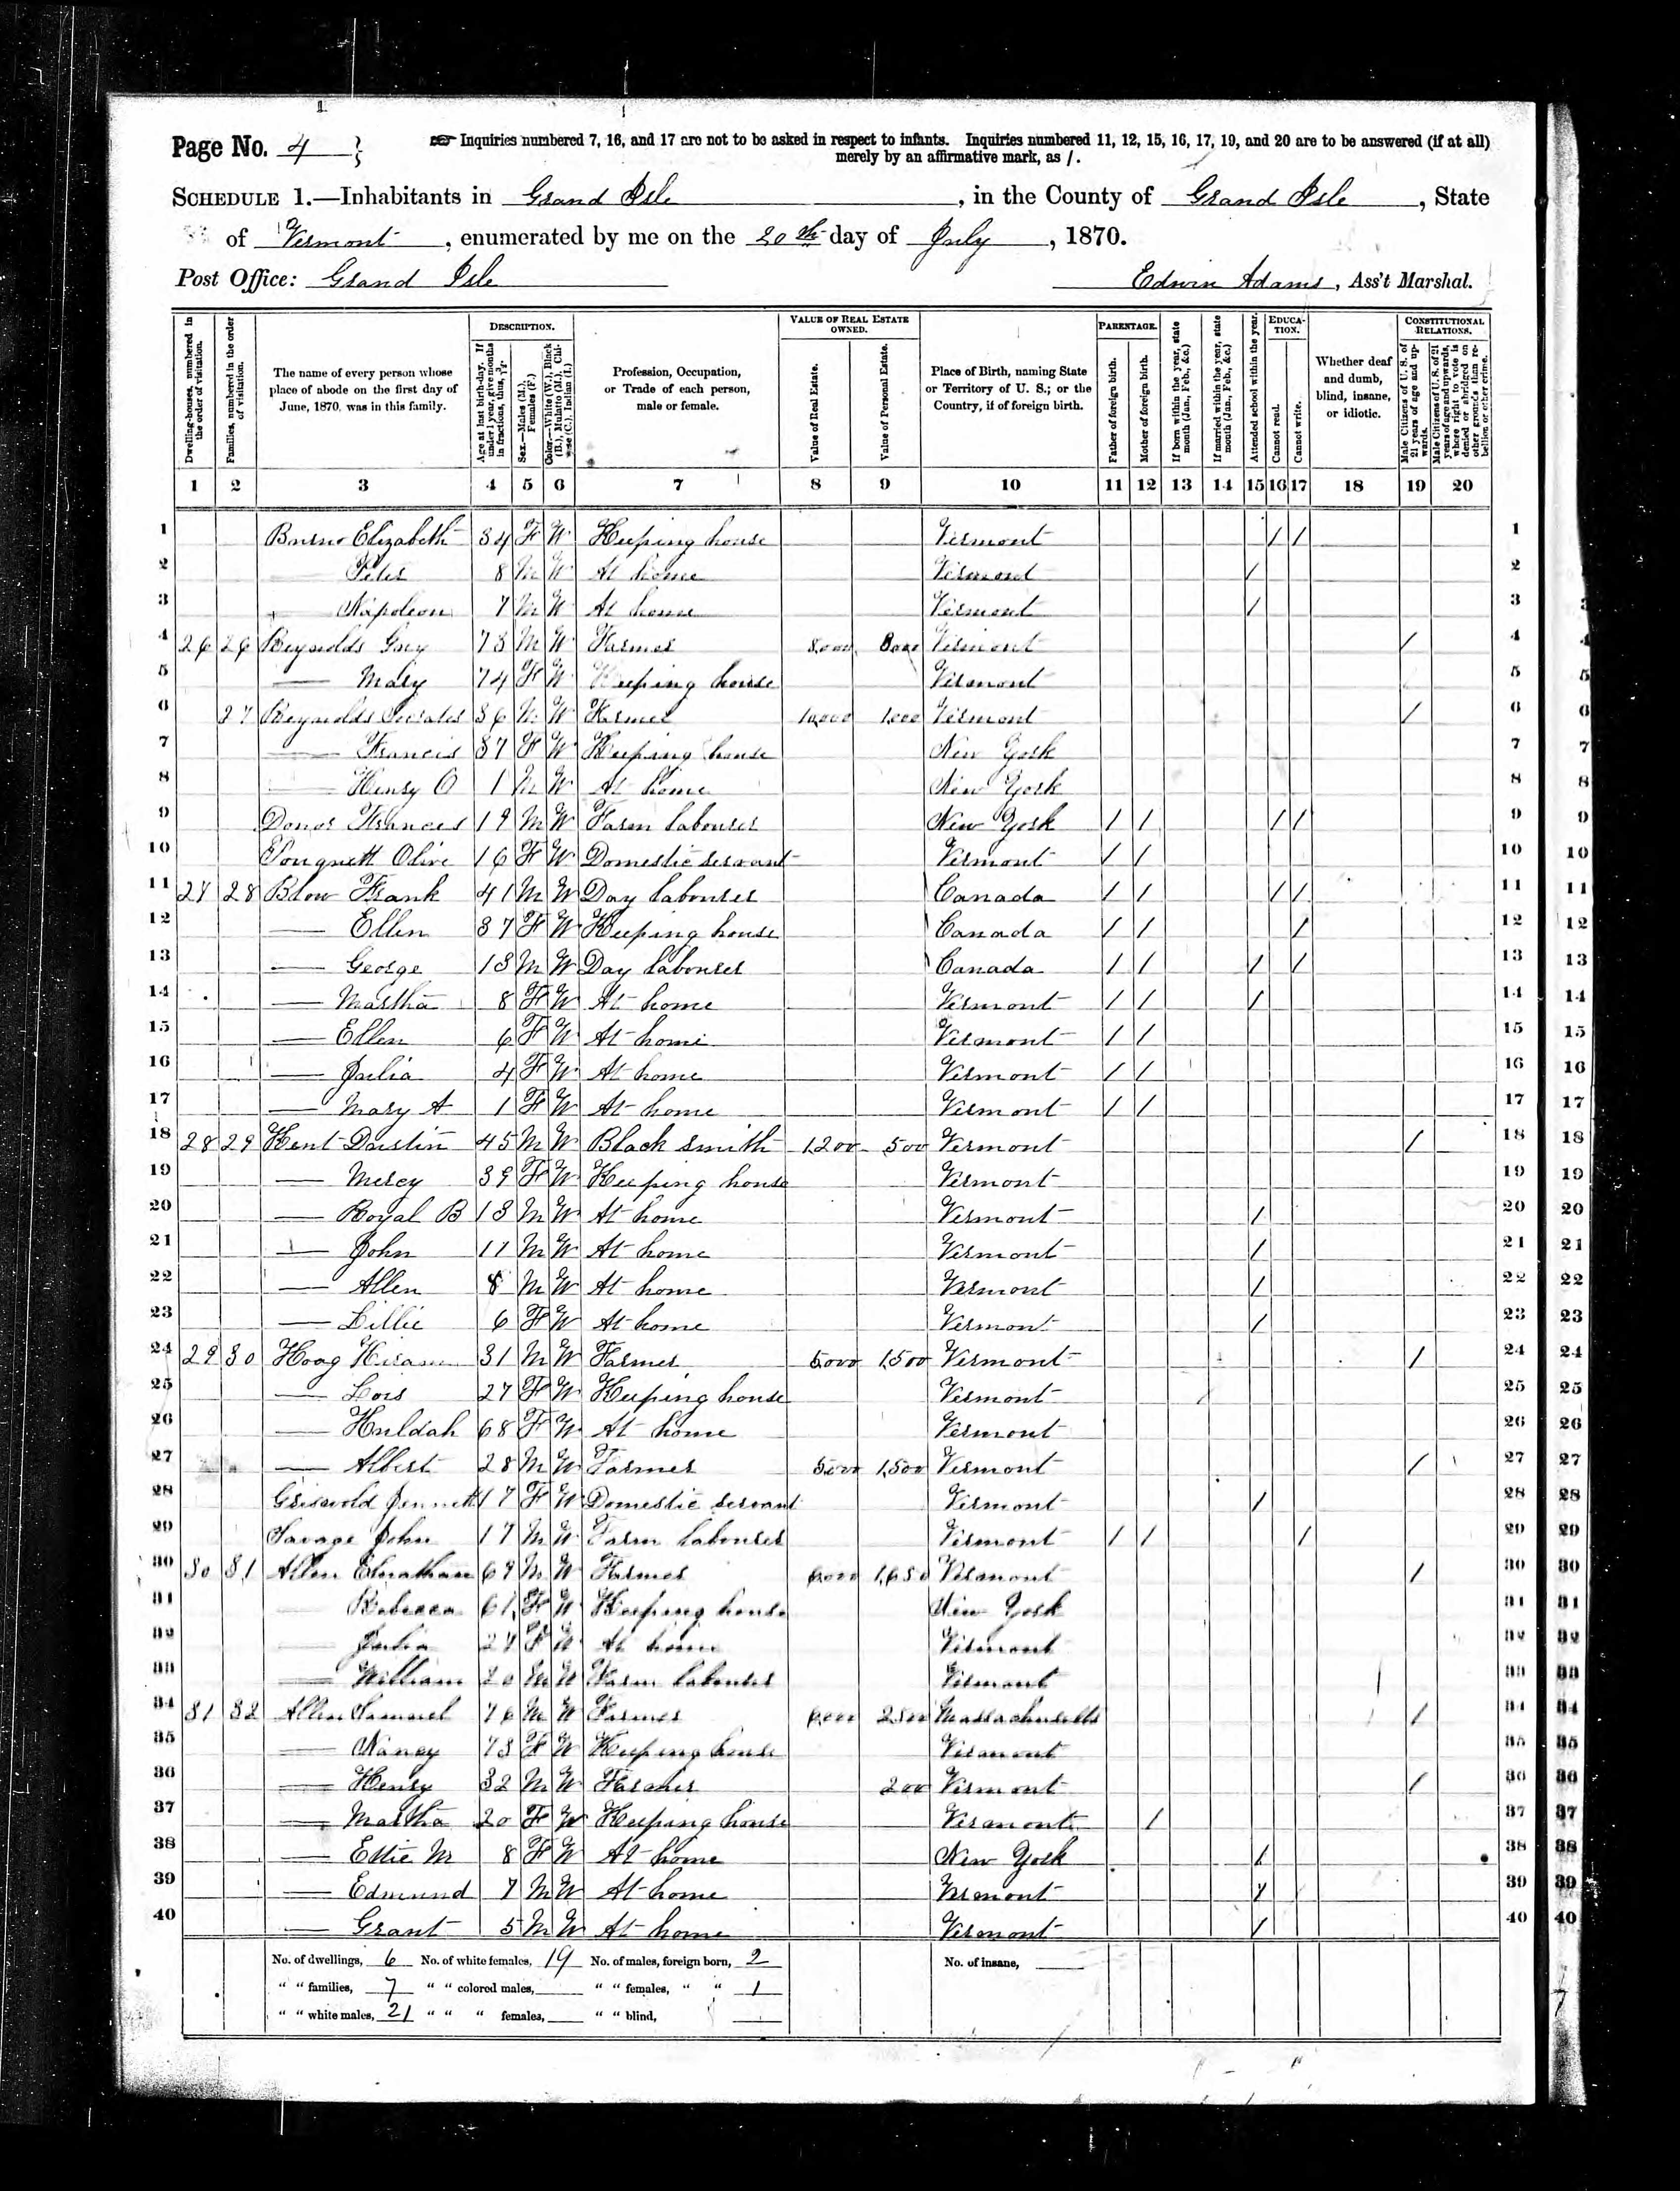 Page No. 4 } ☞ Inquiries numbered 7, 16, and 17 are not to be asked in respect to infants. Inquiries numbered 11, 12, 15, 16, 17, 19, and 20 are to be answered (if at all)
merely by an affirmative mark, as /.
SCHEDULE 1.—Inhabitants in Grand Isle, in the County of Grand Isle, State
of Vermont, enumerated by me on the 20th day of July, 1870.
Post Office: Grand Isle Edwin Adams, Ass't Marshal.
Dwelling-houses, numbered in the order of visitation.
Families, numbered in the order of visitation.
The name of every person whose place of abode on the first day of June, 1870, was in this family.
DESCRIPTION.
Age at last birth-day. If under 1 year, give months in fractions, thus, 3/12.
Sex.—Males (M.), Females (F.)
Color.—White (W.), Black (B.), Mulatto (M.), Chinese (C.), Indian (I.)
Profession, Occupation, or Trade of each person, male or female.
VALUE OF REAL ESTATE OWNED.
Value of Real Estate.
Value of Personal Estate.
Place of Birth, naming State or Territory of U. S.; or the Country, if of foreign birth.
PARENTAGE.
Father of foreign birth.
Mother of foreign birth.
If born within the year, state month (Jan., Feb., &c.)
If married within the year, state month (Jan., Feb., &c.)
Attended school within the year.
EDUCATION.
Cannot read.
Cannot write.
Whether deaf and dumb, blind, insane, or idiotic.
CONSTITUTIONAL RELATIONS.
Male Citizens of U. S. of 21 years of age and upwards.
Male Citizens of U. S. of 21 years of age and upwards, where right to vote is denied or abridged on other grounds than rebellion or other crime.
1 2 3 4 5 6 7 8 9 10 11 12 13 14 15 16 17 18 19 20
1 Elizabeth 34 F W Keeping house Vermont / / 1
2 — Peter 8 M W At home Vermont / 2
3 — Napoleon 7 M W At home Vermont / 3
4 26 26 Reynolds Guy 73 M W Farmer 8000 8000 Vermont / 4
5 — Mary 74 F W Keeping house Vermont 5
6 27 Reynolds Socrates 36 M W Farmer 10,000 1,000 Vermont / 6
7 — Francis 37 F W Keeping house New York 7
8 — Henry O 1 M W At home New York 8
9 Francis 19 M W Farm labourer New York / / / / 9
10 Olive 16 F W Domestic servant Vermont / / 10
11 27 28 Blow Frank 41 M W Day labourer Canada / / / / 11
12 — Ellen 37 F W Keeping house Canada / / / 12
13 — George 18 M W Day labourer Canada / / / / 13
14 — Martha 8 F W At home Vermont / / / 14
15 — Ellen 6 F W At home Vermont / / 15
16 — Julia 4 F W At home Vermont / / 16
17 — Mary A 1 F W At home Vermont / / 17
18 28 29 Kent Dustin 45 M W Black smith 1,200 500 Vermont / 18
19 — Mercy 39 F W Keeping house Vermont 19
20 — Royal B 13 M W At home Vermont / 20
21 — John 11 M W At home Vermont / 21
22 — Allen 8 M W At home Vermont / 22
23 — Lillie 6 F W At home Vermont / 23
24 29 30 Hoag Hiram 31 M W Farmer 5000 1,500 Vermont / 24
25 — Lois 27 F W Keeping house Vermont 25
26 — Huldah 68 F W At home Vermont 26
27 — Albert 28 M W Farmer 5000 1,500 Vermont / 27
28 Griswold 17 F W Domestic servant Vermont / 28
29 Savage John 17 M W Farm labourer Vermont / / / 29
30 30 31 Allen Elnathan 69 M W Farmer 6000 1,650 Vermont / 30
31 — Rebecca 61 F W Keeping house New York 31
32 — Julia 27 F W At home Vermont 32
33 — William 20 M W Farm labourer Vermont 33
34 31 32 Allen Samuel 76 M W Farmer 6000 2500 Massachusetts / 34
35 — Nancy 73 F W Keeping house Vermont 35
36 — Henry 32 M W Farmer 200 Vermont / 36
37 — Martha 20 F W Keeping house Vermont / 37
38 — Ettie M 8 F W At home New York / 38
39 — Edmund 7 M W At home Vermont / 39
40 — Grant 5 M W At home Vermont / 40
No. of dwellings, 6 No. of white females, 19 No. of males, foreign born, 2 No. of insane,
" " families, 7 " " colored males, " " females, " " 1
" " white males, 21 " " " females, " " blind,